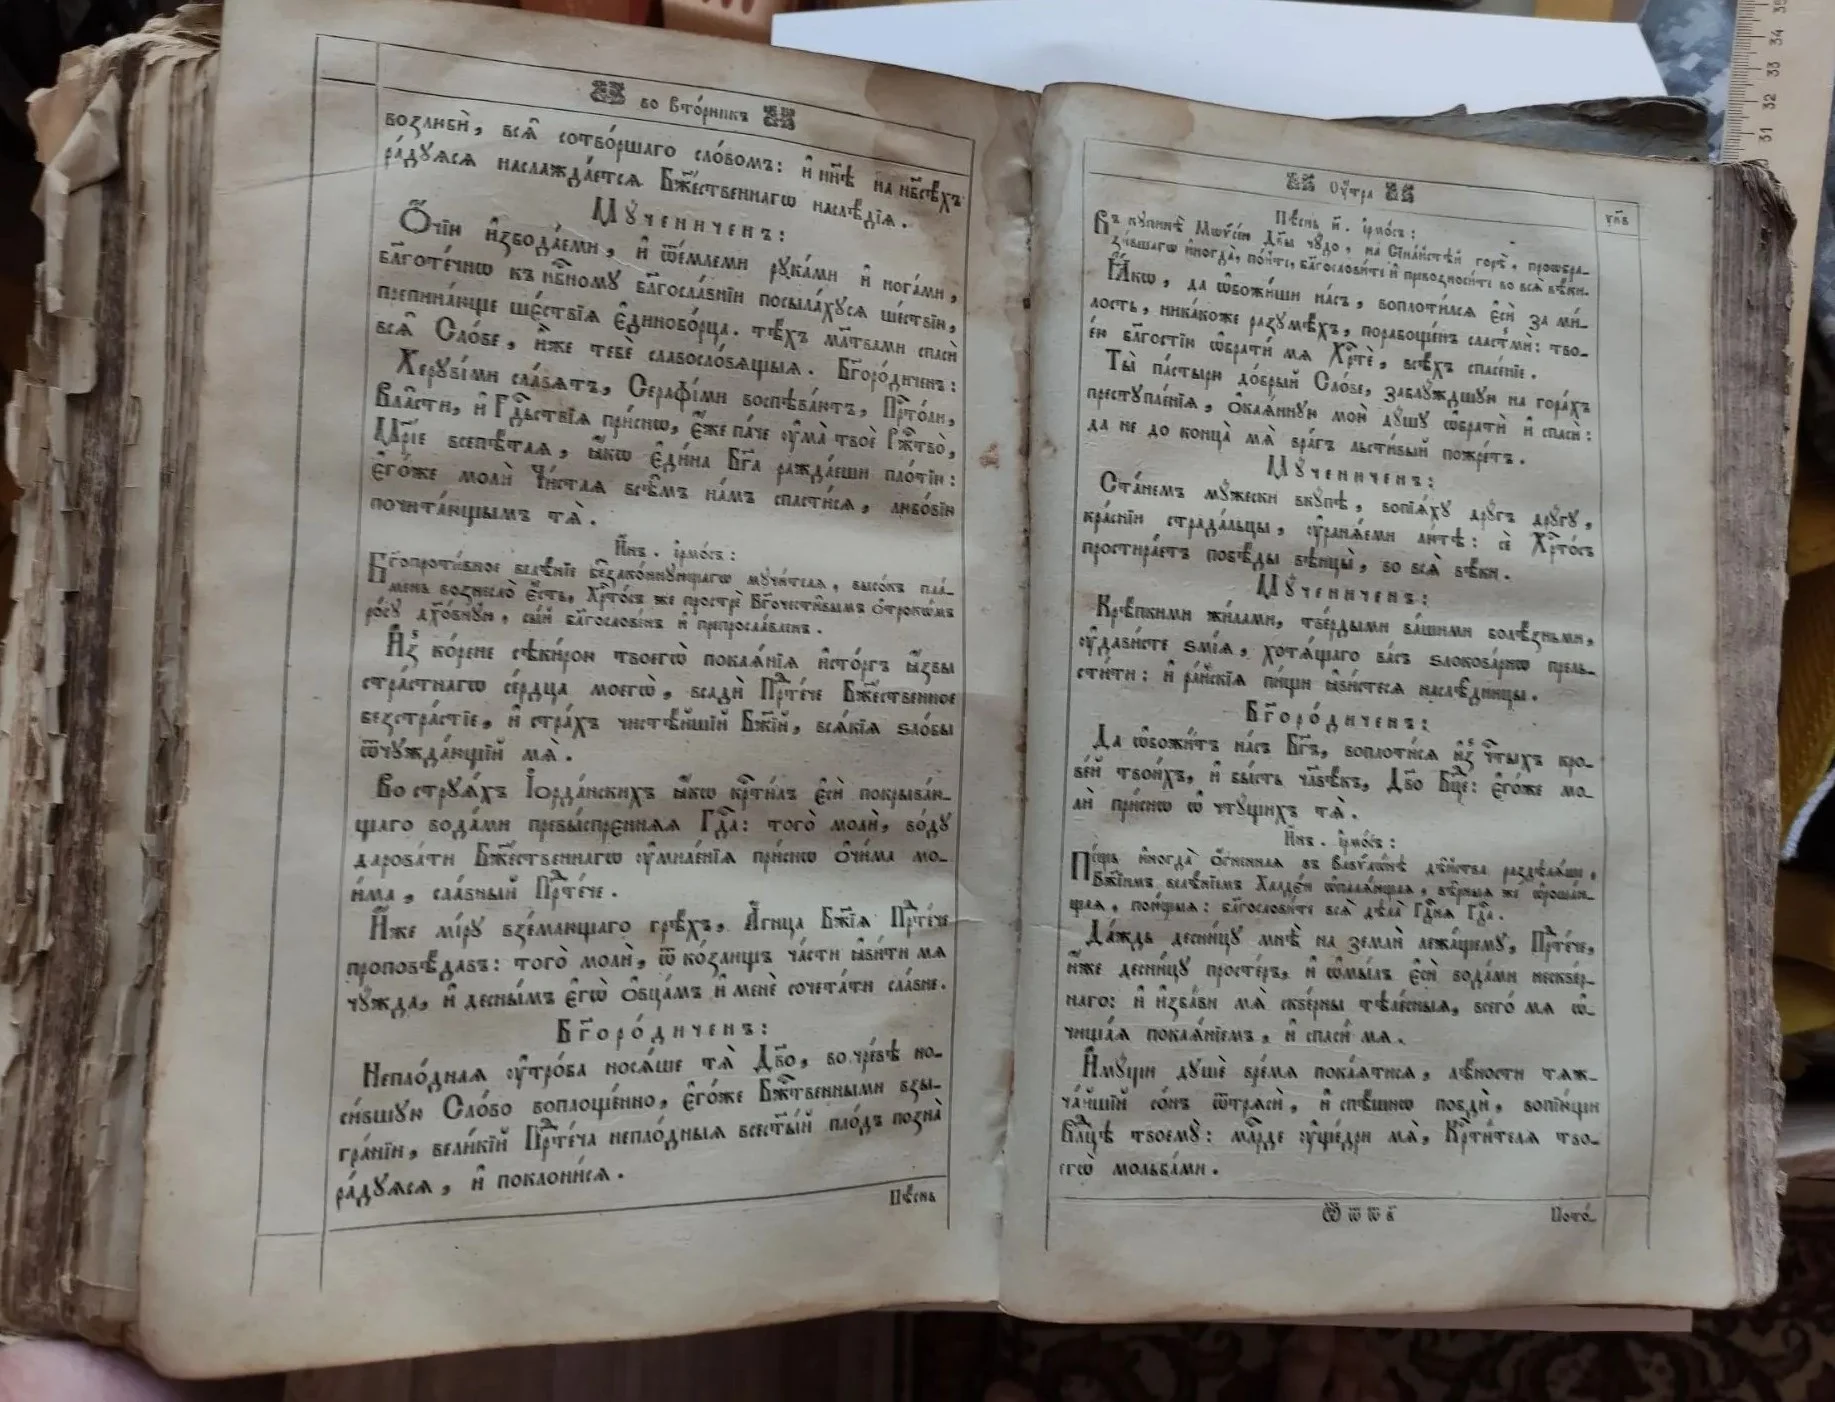 во вто́рникъ
возлюбѝ, всѧ̑ сотво́ршаго сло́вомъ: и҆ нн҃ѣ на нб҃сѣ́хъ
ра́дуѧсѧ наслажда́етсѧ Бж҃е́ственнагѡ наслѣ́дїѧ.
Мч҃ниченъ:
Ѻ҆чїю̀ и҆зводѧ́еми, и҆ ѿе́млеми рука́ми и҆ нога́ми,
бл҃готе́чнѡ къ нб҃ному бл҃госла́внїи посыла́хусѧ ше́ствїю,
препина́юще ше́ствїѧ є҆диноборца. тѣ́хъ мл҃твами спасѝ
всѧ̑ Сло́ве, и҆̀же тебѐ славосло́вѧщыѧ. Бг҃оро́диченъ:
Херуві́ми сла́вѧтъ, Серафі́ми воспѣва́ютъ, Прⷭ҇то́ли,
Вла̑сти, и҆ Гдⷭ҇ьствїѧ при́снѡ, є҆́же па́че ѹ҆ма̀ твоѐ Ржⷭ҇тво̀,
Мр҃і́е всепѣ́таѧ, ꙗ҆́кѡ є҆ди́на Бг҃а ражда́еши пло́тїю:
є҆го́же молѝ Чи́стаѧ всѣ̑мъ на́мъ спасти́сѧ, любо́вїю
почита́ющымъ тѧ̀.
И҆́нъ. і҆рмо́съ:
Бг҃опроти́вное велѣ́нїе беззако́ннующагѡ мучи́телѧ, высо́къ пла́-
мень вознесло̀ є҆́сть, Хрⷭ҇то́съ же прострѐ Бг҃очести̑вымъ ѻ҆трокѡ́мъ
ро́су дх҃о́вную, сы́й бл҃гослове́нъ и҆ препросла́вленъ.
И҆з̾ ко́рене сѣки́рою твоегѡ̀ покаѧ́нїѧ и҆сто́ргъ ꙗ҆́звы
стра́стнагѡ се́рдца моегѡ̀, всадѝ Прⷣте́че Бж҃е́ственное
безстра́стїе, и҆ стра́хъ чистѣ́йшїй Бж҃їй, всѧ́кїѧ ѕло́бы
ѿчужда́ющїй мѧ̀.
Во струѧ́хъ І҆ѻрда́нскихъ ꙗ҆́кѡ крⷭ҇ти́лъ є҆сѝ покрыва́ю-
щаго вода́ми превы́спреннѧѧ Гдⷭ҇а: того̀ молѝ, во́ду
дарова́ти Бж҃е́ственнагѡ ѹ҆миле́нїѧ при́снѡ ѻ҆чи́ма мо-
и́ма, сла́вный Прⷣте́че.
И҆́же мі́ру взе́млющаго грѣ́хъ, А҆́гнца Бж҃їѧ Прⷣте́че
проповѣ́давъ: того̀ молѝ, ѿ ко́злищъ ча́сти ꙗ҆ви́ти мѧ
чу́жда, и҆ десны́мъ є҆гѡ̀ ѻ҆вца́мъ и҆ менѐ сочета́ти сла́вне.
Бг҃оро́диченъ:
Непло́днаѧ ѹ҆тро́ба носѧ́ше тѧ̀ Дв҃о, во чре́вѣ но-
си́вшую Сло́во воплоще́нно, є҆го́же Бжⷭ҇твенными взы-
гра́нїи, вели́кїй Прⷣте́ча непло́дныѧ всесты́й пло́дъ позна̀
ра́дуѧсѧ, и҆ поклони́сѧ.
Пѣ́снь
Ѹ҆́тра
ѱн҃в
Пѣ́снь и҃. і҆рмо́съ:
Въ купинѣ̀ Мѡѷсе́ю Дв҃ы чу́до, на Сїна́йстѣй горѣ̀, проѡбра-
зи́вшагѡ и҆ногда̀, по́йте, благослови́те и҆ превозноси́те во всѧ̑ вѣ́ки.
Ꙗ҆́кѡ, да ѡ҆божи́ши на́съ, воплоти́лсѧ є҆сѝ за ми́-
лость, ника́коже разумѣ́хъ, порабоще́нъ сластьмѝ: тво-
е́ю бл҃гостїю ѡ҆братѝ мѧ Хрⷭ҇тѐ, всѣ́хъ спасе́нїе.
Ты̀ па́стырю до́брый Сло́ве, заблу́ждшую на гора́хъ
преступле́нїѧ, ѻ҆каѧ́нную мою̀ ду́шу ѡ҆братѝ и҆ спасѝ:
да не до конца̀ мѧ̀ вра́гъ льсти́вый пожре́тъ.
Мч҃ниченъ:
Ста́немъ му́жески вку́пѣ, вопїѧ́ху дру́гъ дру́гу,
кра́снїи страда́льцы, ѹ҆ранѧ́еми лю́тѣ: сѐ Хрⷭ҇то́съ
простира́етъ побѣ́ды вѣнцы̀, во всѧ̑ вѣ́ки.
Мч҃ниченъ:
Крѣ́пкими жи́лами, тве́рдыми ва́шими болѣ́зньми,
ѹ҆дави́сте ѕмі́ѧ, хотѧ́щаго ва́съ ѕлокова́рнѡ прель-
сти́ти: и҆ ра́йскїѧ пи́щи ꙗ҆ви́стесѧ наслѣ́дницы.
Бг҃оро́диченъ:
Да ѡ҆божи́тъ на́съ Бг҃ъ, воплоти́сѧ и҆з̾ чⷭ҇тыхъ кро-
ве́й твои́хъ, и҆ бы́сть чл҃вѣ́къ, Дв҃о Бц҃е: є҆го́же мо-
лѝ при́снѡ ѡ҆ чту́щихъ тѧ̀.
И҆́нъ. і҆рмо́съ:
Пе́щь и҆ногда̀ ѻ҆́гненнаѧ въ Вавѷлѡ́нѣ дѣ̑йства раздѣлѧ́ше,
Бж҃їимъ велѣ́нїемъ Халде́и ѡ҆палѧ́ющаѧ, вѣ̑рныѧ же ѡ҆роша́ю-
щаѧ, пою́щыѧ: бл҃гослови́те всѧ̑ дѣла̀ Гдⷭ҇нѧ Гдⷭ҇а.
Да́ждь десни́цу мнѣ̀ на землѝ лежа́щему, Прⷣте́че,
и҆́же десни́цу просте́ръ, и҆ ѡ҆мы́лъ є҆сѝ вода́ми несквéр-
наго: и҆ и҆зба́ви мѧ̀ скве́рны тѣле́сныѧ, всего́ мѧ ѡ҆-
чища́ѧ покаѧ́нїемъ, и҆ спаси́ мѧ.
И҆му́щи душѐ вре́мѧ покаѧ́тисѧ, лѣ́ности тѧж-
ча́йшїй со́нъ ѿтрѧсѝ, и҆ спѣ́шнѡ побдѝ, вопїю́щи
Влⷣцѣ твоемꙋ̀: млⷭ҇рде ѹ҆ще́дри мѧ̀, Крⷭ҇ти́телѧ тво-
егѡ̀ мольба́ми.
Ѿ ѿ ѿ в҃
Пото́-